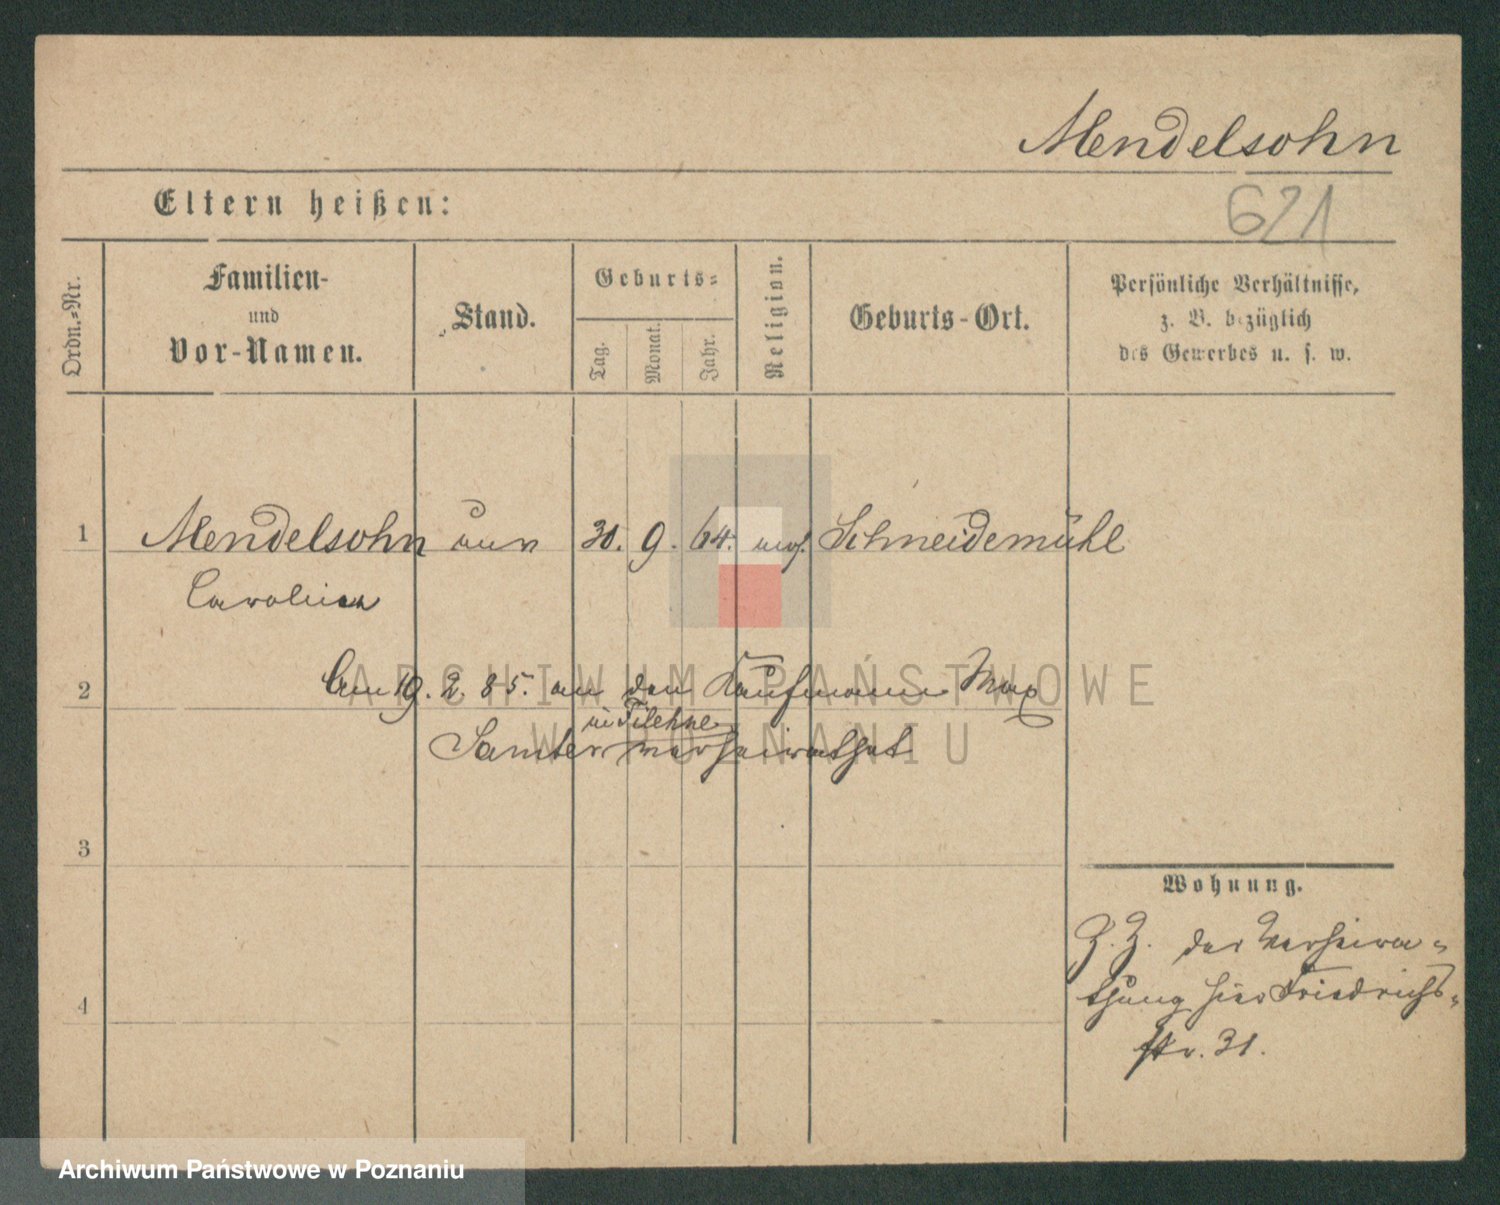 Mendelsohn
621
Eltern heißen:
Ordn.=Nr.
Familien-
und
Vor-Namen.
Stand.
Geburts=
Tag.
Monat.
Jahr.
Religion.
Geburts-Ort.
Persönliche Verhältnisse,
z. B. bezüglich
des Gewerbes u. s. w.
1 Mendelsohn 9. 64. mos. Schneidemühl
Caroline
2 Am 19. 2. 85. an den Kaufmann Max
in Filehne
Samter verheirathet
ARCHIWUM PAŃSTWOWE
W POZNANIU
3
Wohnung.
Z. Z. der Verheira=
thung hier Friedrichs=
str. 31.
4
Archiwum Państwowe w Poznaniu